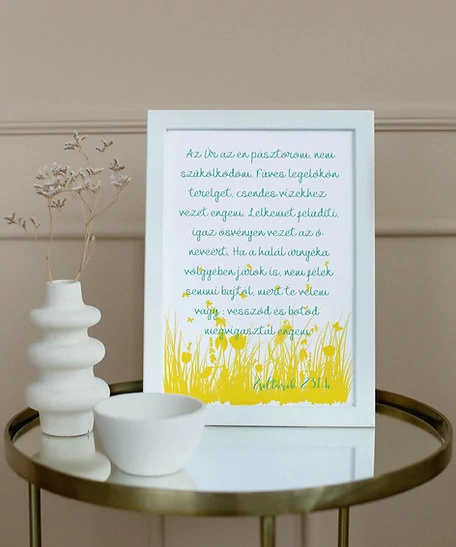 Az Úr az én pásztorom, nem
szűkölködöm. Füves legelőkön
terelget, csendes vizekhez
vezet engem. Lelkemet felüdíti,
igaz ösvényen vezet az ő
nevéért. Ha a halál árnyéka
völgyében járok is, nem félek
semmi bajtól, mert te velem
vagy : vessződ és botod
megvigasztal engem."